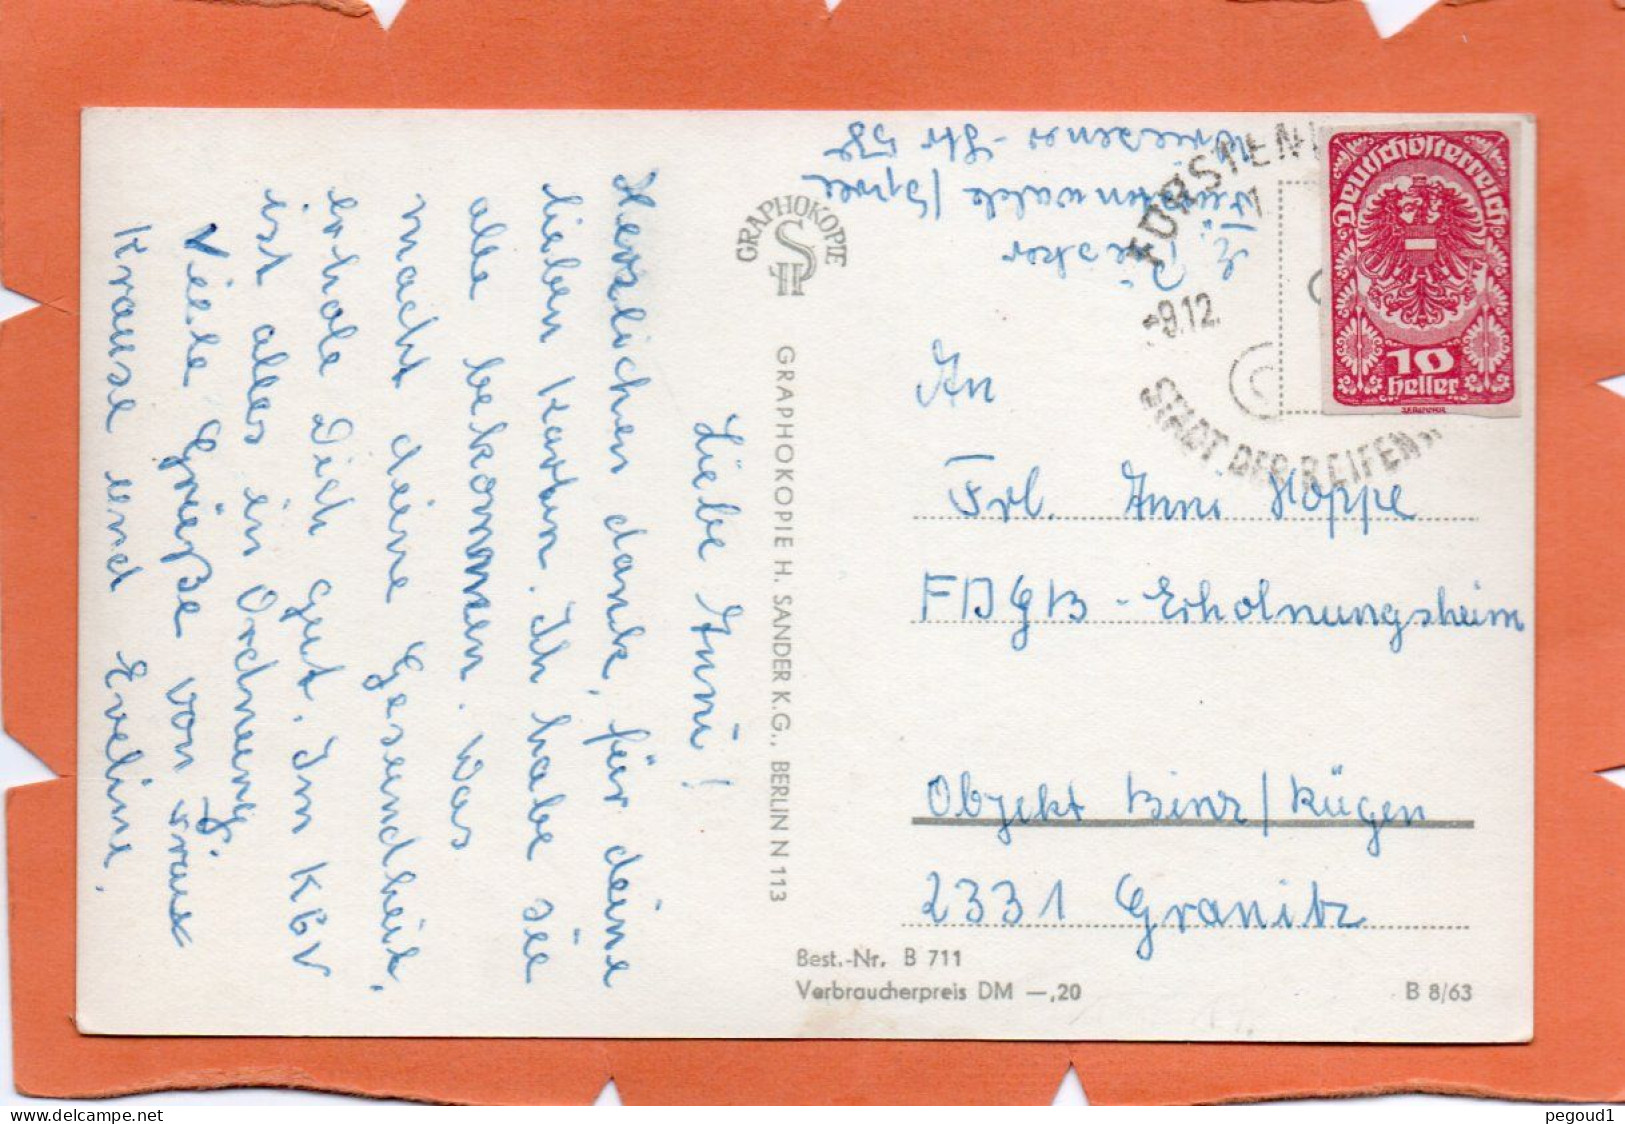 Liebe Anni!
Herzlichen dank, für deine
lieben Karten. Ich habe sie
alle bekommen. Was
macht deine Gesendheit,
erhole Dich gut. Im KGV
ist alles in Ordnung.
Viele Grüße von
Krause und Eveline.
GRAPHOKOPIE
GRAPHOKOPIE H. SANDER K.G., BERLIN N 113
Fürstenwalde/Spree
Wriezener-Str 58
FÜRSTEN
9.12.
STADT DER REIFEN
Deutschösterreich
10
heller
An
Frl. Anni Hoppe
FDGB-Erholnungsheim
Objekt Binz/Rügen
2331 Granitz
Best.-Nr. B 711
Verbraucherpreis DM —,20
B 8/63
pegoud1
https://www.delcampe.net